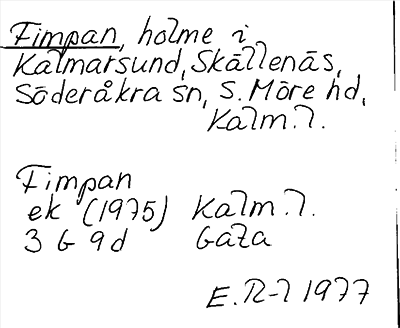 Fimpan, holme i
Kalmarsund, Skällenäs,
Söderåkra sn, S. Möre hd,
Kalm. l.
Fimpan
ek (1975) Kalm. l.
3 G 9d Gata
E. R-l 1977